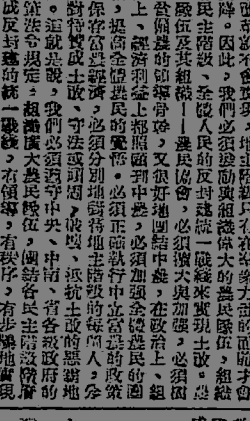 面前才會
降。因此,我們必須發動與組織偉大的農民隊伍,組織
民主階級、全體人民的反封建統一戰綫來實現土改。農
隊伍及其組織——農民協會,必須擴大與加強,必須固
當僱農的領導骨幹,又很好地團結中農,在政治上、組
上、經濟利益上都照顧到中農,必須加強全體農民的團
,提高全體農民的覺悟。必須正確執行中立富農的政策
保存富農經濟,必須分別地對待地主階級的每個人,分
對待贊成土改、守法或頑固、破壞、抵抗土改的惡霸地
。這就是說,我們必須遵守中央、中南、省各級政府的
策法令規定,組織廣大農民隊伍,團結各民主階級階層
成反封建的統一戰綫,有領導,有秩序,有步驟地實現